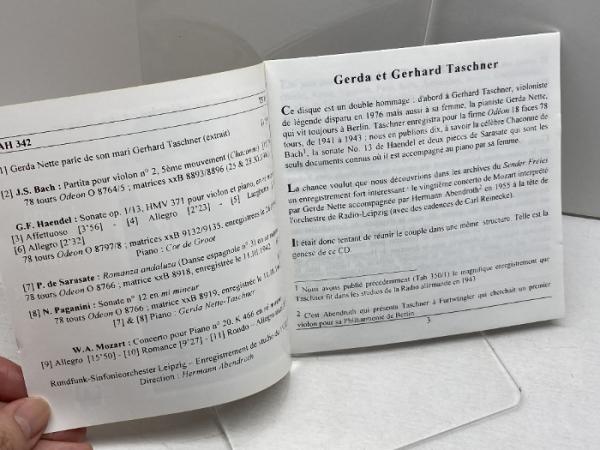 AH 342
1] Gerda Nette parle de son mari Gerhard Taschner (extrait)
[2] J.S. Bach : Partita pour violon n° 2, 5ème mouvement (Chaconne)
78 tours Odeon O 8764/5 ; matrices xxB 8893/8896 (25 &
G.F. Haendel : Sonate op. 1/13, HMV 371 pour violon et piano, en
[3] Affettuoso [3'56] - [4] Allegro [2'23] - [5] Larghetto
[6] Allegro [2'32]
78 tours Odeon O 8797/8 ; matrices xxB 9132/9135, enregistrées le
Piano : Cor de Groot
[7] P. de Sarasate : Romanza andaluza (Danse espagnole n° 3) en
78 tours Odeon O 8766 ; matrice xxB 8918, enregistrée le 11.III.1942
[8] N. Paganini : Sonate n° 12 en mi mineur
78 tours Odeon O 8766 ; matrice xxB 8919, enregistrée le 11.III.
[7] & [8] Piano : Gerda Nette-Taschner
W.A. Mozart : Concerto pour Piano n° 20, K 466 en
[9] Allegro [15'50] - [10] Romance [9'27] - [11] Rondo –
Rundfunk-Sinfonieorchester Leipzig – Enregistrement de studio
Direction : Hermann Abendroth
Gerda et Gerhard Taschner
Ce disque est un double hommage : d'abord à Gerhard Taschner, violoniste
de légende disparu en 1976 mais aussi à sa femme, la pianiste Gerda Nette,
qui vit toujours à Berlin. Taschner enregistra pour la firme Odéon 18 faces 78
tours, de 1941 à 1943 ; nous en publions dix, à savoir la célèbre Chaconne de
Bach1, la sonate No. 13 de Haendel et deux pièces de Sarasate qui sont les
seuls documents connus où il est accompagné au piano par sa femme.
La chance voulut que nous découvrions dans les archives du Sender Freies
un enregistrement fort intéressant : le vingtième concerto de Mozart interprété
par Gerda Nette accompagnée par Hermann Abendroth2 en 1955 à la tête de
l'orchestre de Radio-Leipzig (avec des cadences de Carl Reinecke).
Il était donc tentant de réunir le couple dans une même structure. Telle est la
genèse de ce CD.
1 Nous avons publié précédemment (Tah 350/1) le magnifique enregistrement que
Taschner fit dans les studios de la Radio allemande en 1943
2 C'est Abendroth qui présenta Taschner à Furtwängler qui cherchait un premier
violon pour sa Philharmonie de Berlin
3